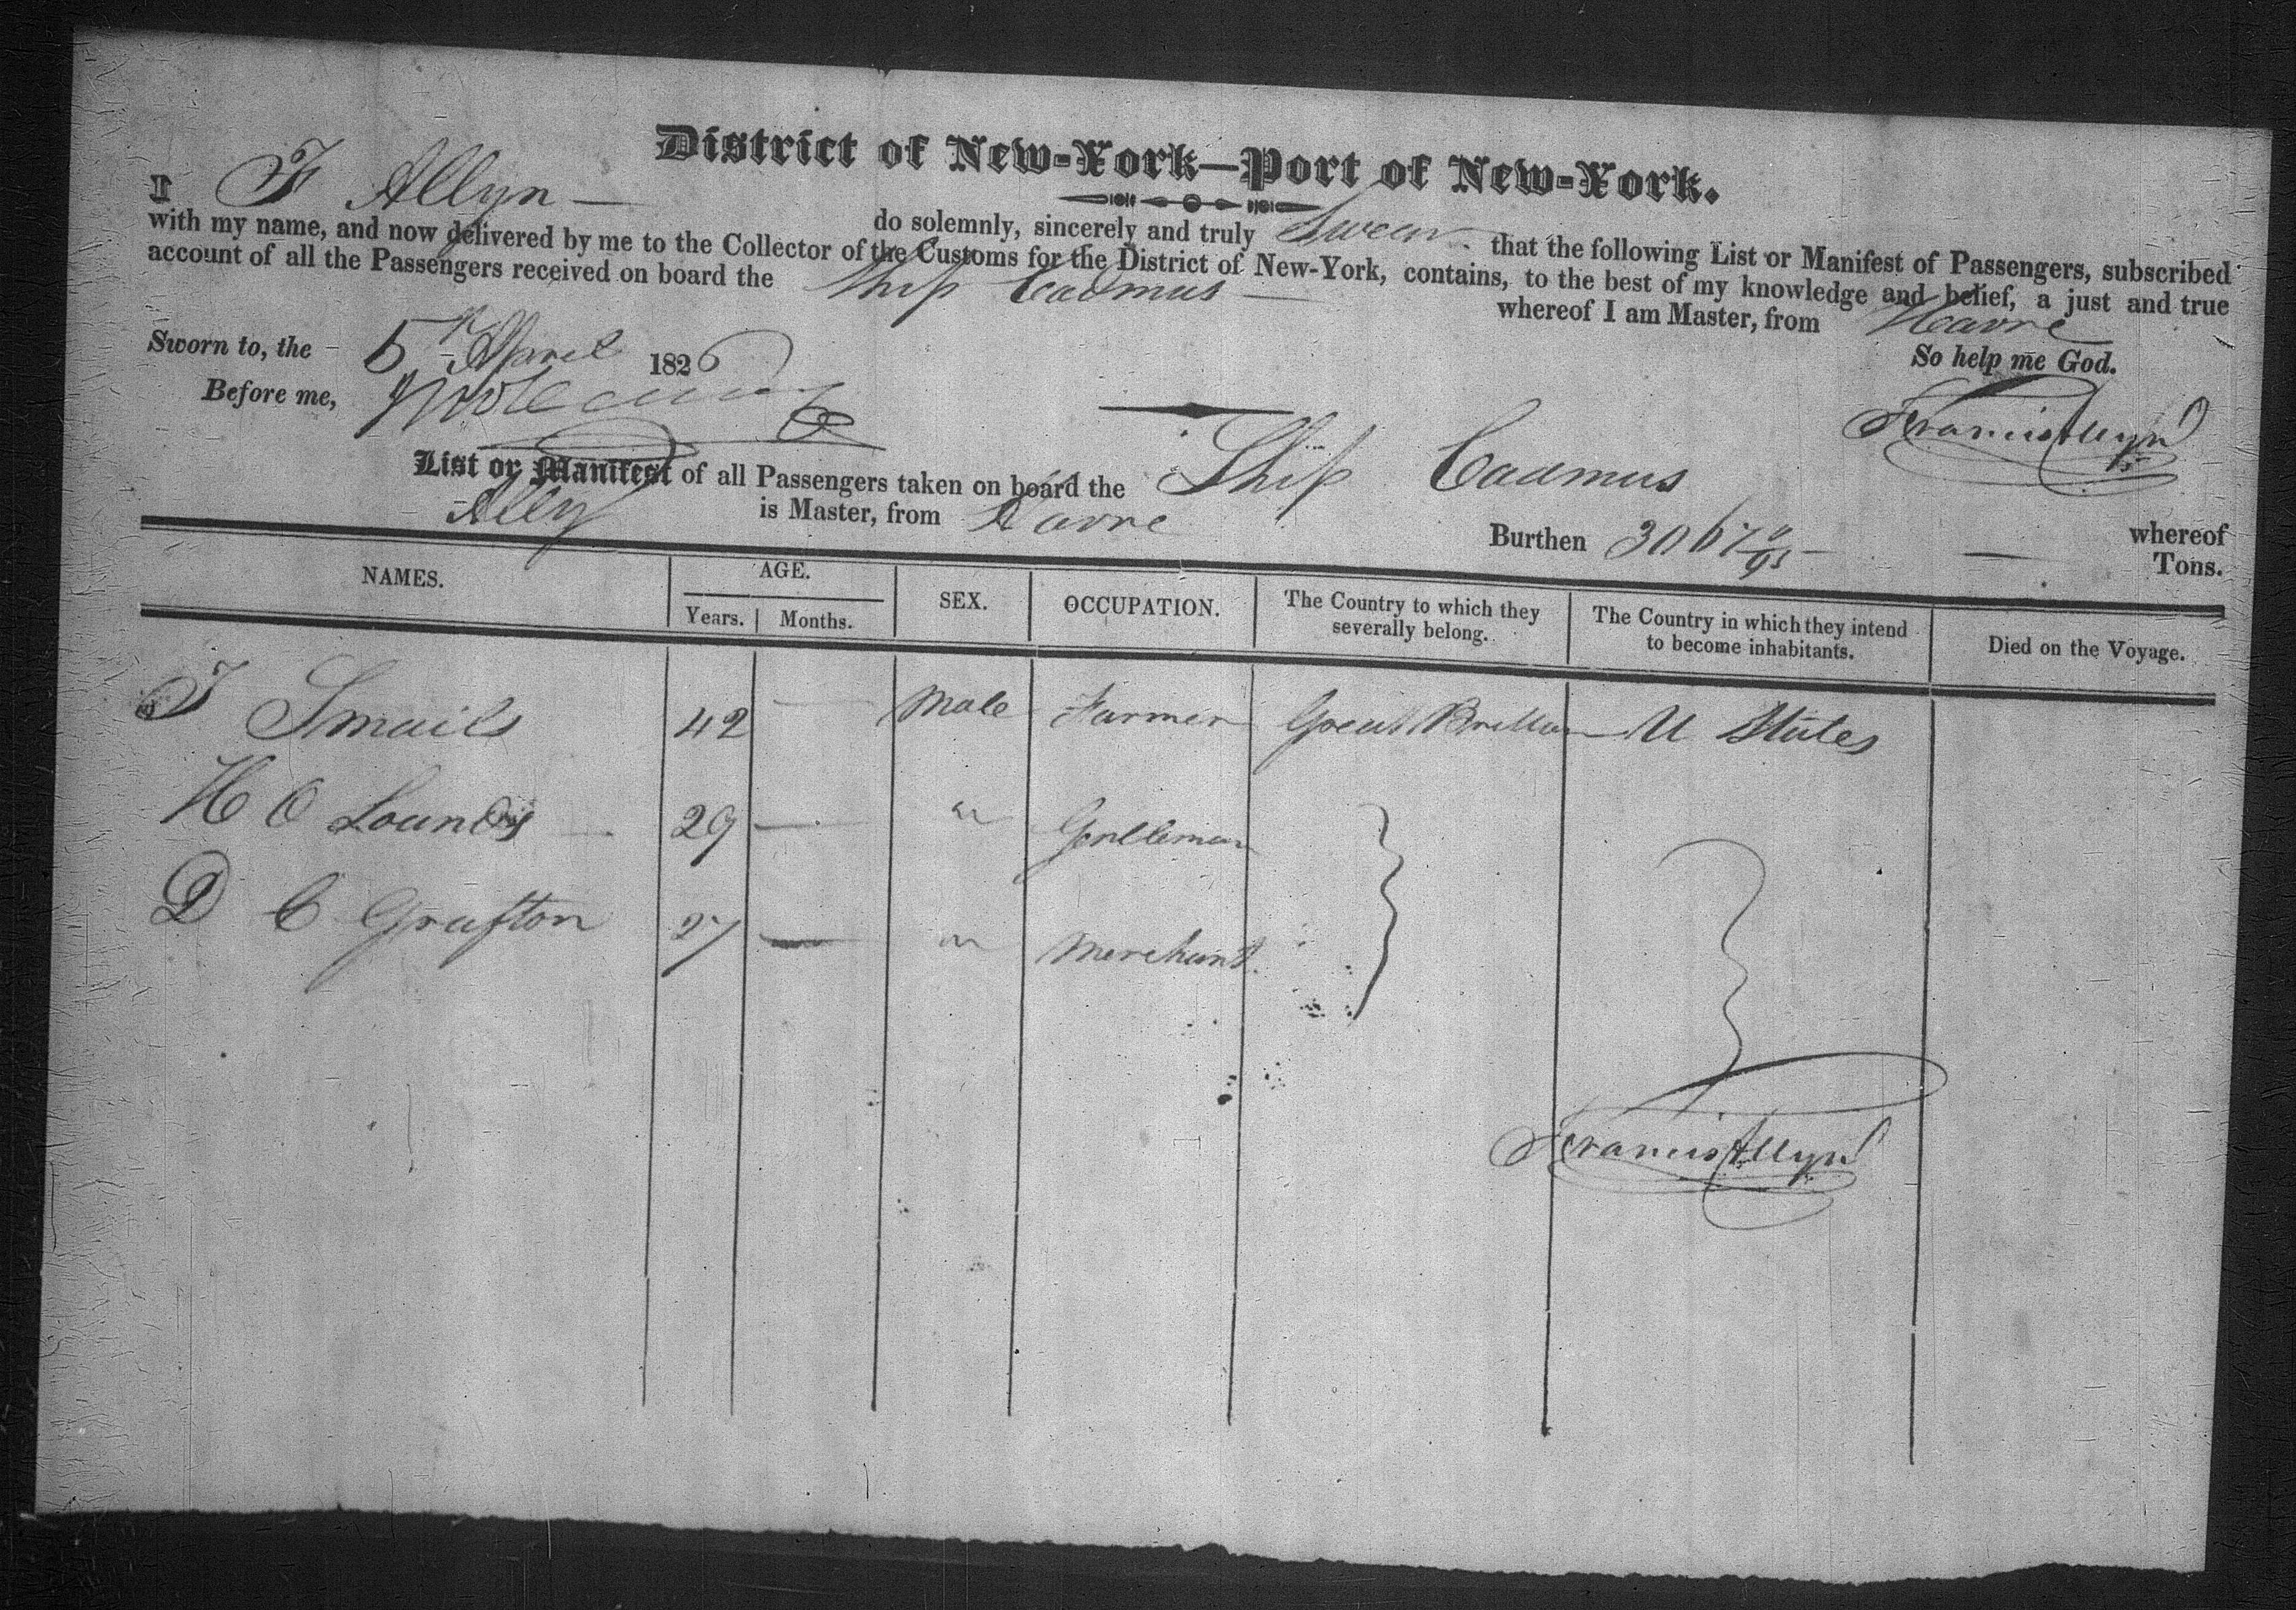 District of New-York—Port of New-York.
I F Allyn — do solemnly, sincerely and truly Swear that the following List or Manifest of Passengers, subscribed
with my name, and now delivered by me to the Collector of the Customs for the District of New-York, contains, to the best of my knowledge and belief, a just and true
account of all the Passengers received on board the Ship Cadmus — whereof I am Master, from Havre
Sworn to, the 5th April 1826 So help me God.
Before me,
Francis Allyn
List or Manifest of all Passengers taken on board the Ship Cadmus whereof
Allyn is Master, from Havre Burthen 306 Tons.
NAMES. AGE. SEX. OCCUPATION. The Country to which they severally belong. The Country in which they intend to become inhabitants. Died on the Voyage.
Years. Months.
Smails 42 — Male Farmer Great Brittan — U States
H O Lounds 29 — " Gentleman
D C Grafton 27 — " Merchant.
Francis Allyn